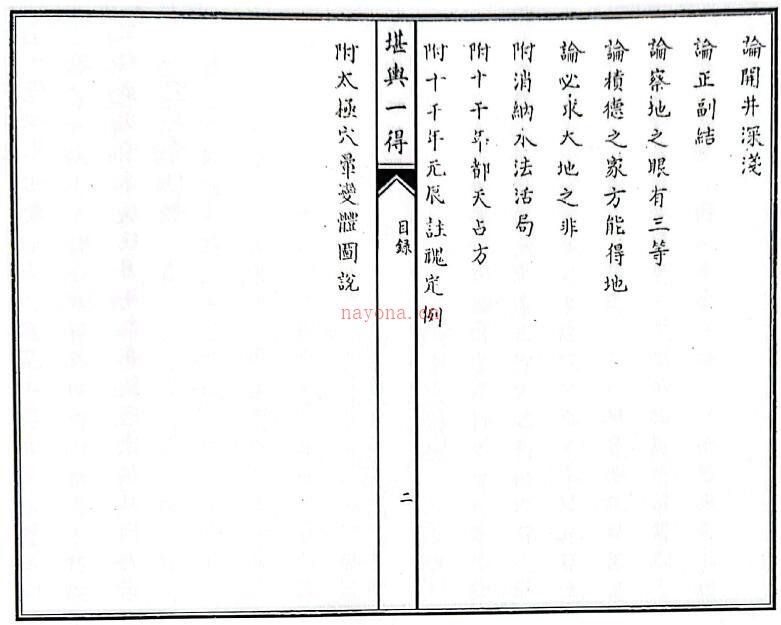 論開井深淺
論正副結
論察地之眼有三等
論積德之家方能得地
論必求大地之非
附消納水法活局
附十干年都天占方
附十干年元辰註䰟定例
堪輿一得
目錄
二
附太極穴暈變體圖說
nayona.cn